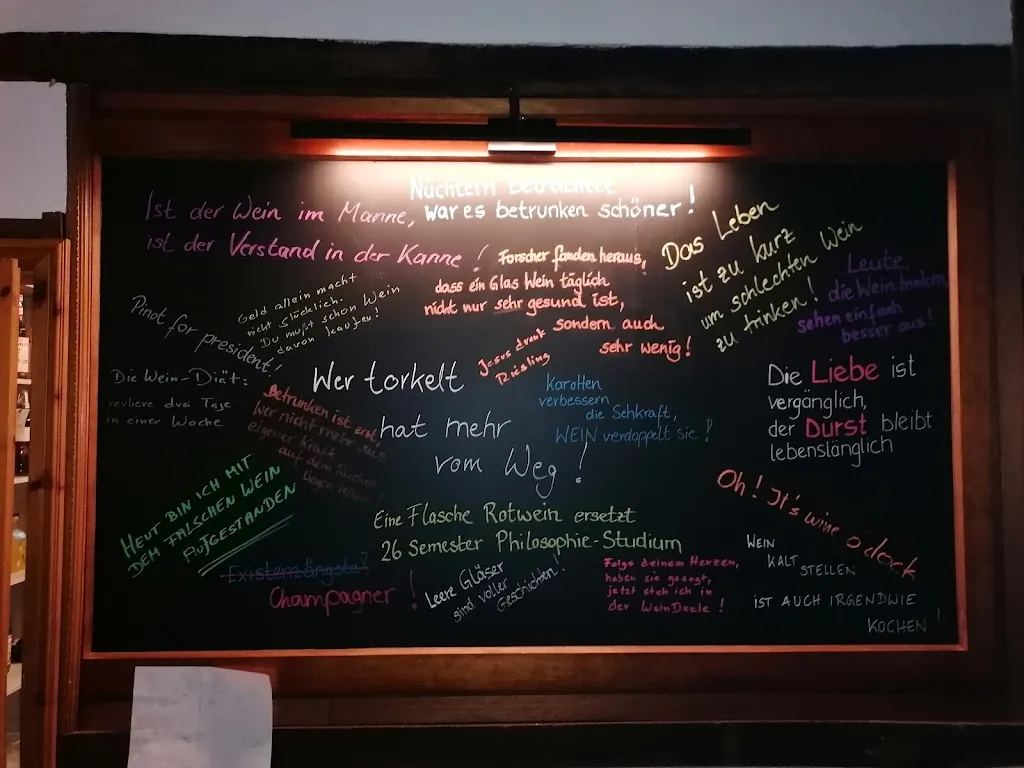 Nüchtern betrachtet
war es betrunken schöner!
Ist der Wein im Manne,
ist der Verstand in der Kanne!
Forscher fanden heraus,
dass ein Glas Wein täglich
nicht nur sehr gesund ist,
sondern auch
sehr wenig!
Das Leben
ist zu kurz
um schlechten Wein
zu trinken!
Leute,
die Wein trinken,
sehen einfach
besser aus!
Geld allein macht
nicht glücklich.
Du mußt schon Wein
davon kaufen!
Pinot for president!
Jesus drank
Riesling
Die Wein-Diät:
verliere drei Tage
in einer Woche
Betrunken ist erst
wer nicht mehr aus
eigener Kraft
auf dem Rücken
liegen kann!
Wer torkelt
hat mehr
vom Weg!
Karotten
verbessern
die Sehkraft,
WEIN verdoppelt sie!
Die Liebe ist
vergänglich,
der Durst bleibt
lebenslänglich
HEUT BIN ICH MIT
DEM FALSCHEN WEIN
AUFGESTANDEN
Eine Flasche Rotwein ersetzt
26 Semester Philosophie-Studium
Oh! It's wine o'clock
Existenzängste?
Champagner!
Leere Gläser
sind voller
Geschichten!
Folge deinem Herzen,
haben sie gesagt,
jetzt steh ich in
der WeinDeele!
WEIN
KALT
STELLEN
IST AUCH IRGENDWIE
KOCHEN!